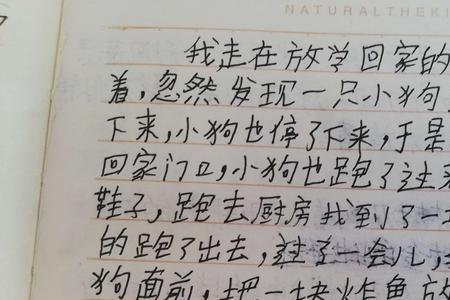 NATURALTHEKI
我走在放学回家的
着,忽然发现一只小狗
下来,小狗也停了下来,于是
回家门口,小狗也跑了过来
鞋子,跑去厨房找到了一
的跑了出去,过了一会儿,
狗面前,把一块炸鱼放